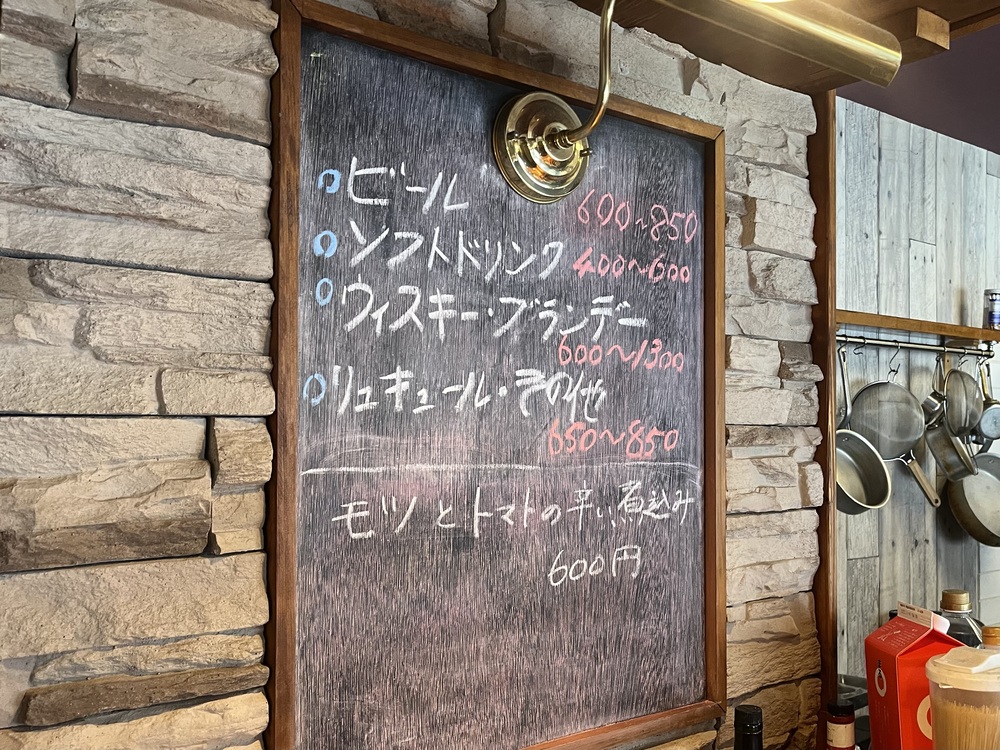 ビール 600~850
ソフトドリンク 400~600
ウィスキー・ブランデー
600~1300
リュキュール・その他
650~850
モツとトマトの辛い煮込み
600円